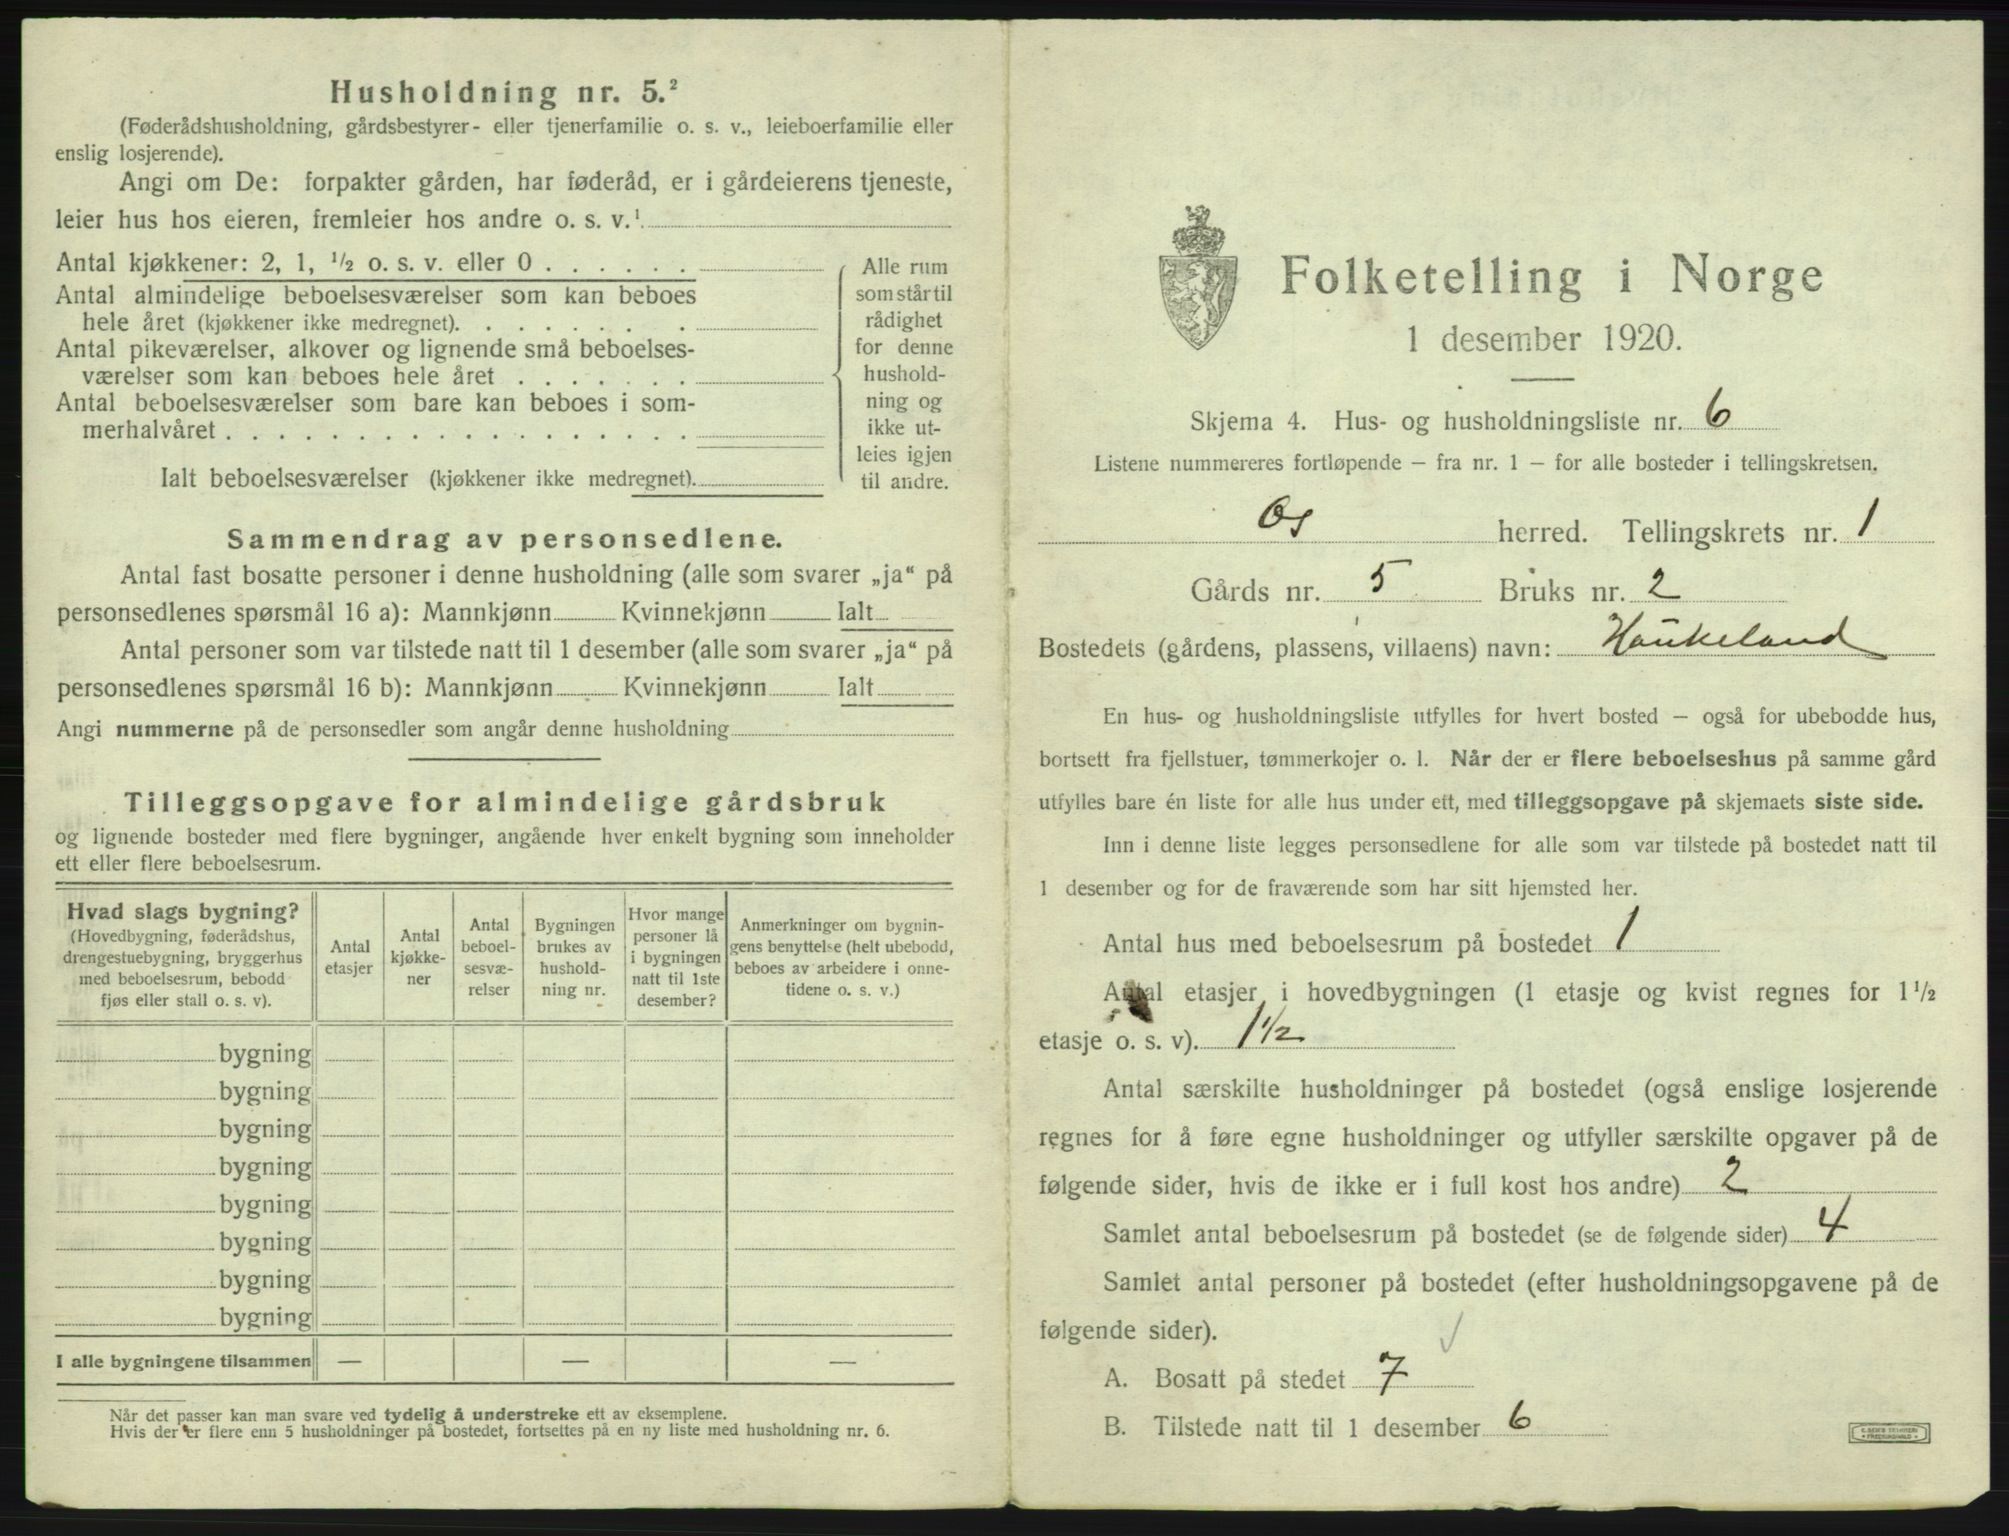 Husholdning nr. 5.²
(Føderådshusholdning, gårdsbestyrer- eller tjenerfamilie o. s. v., leieboerfamilie eller
enslig losjerende).
Angi om De: forpakter gården, har føderåd, er i gårdeierens tjeneste,
leier hus hos eieren, fremleier hos andre o. s. v.¹
Antal kjøkkener: 2, 1, ½ o. s. v. eller 0 . . . . . .
Antal almindelige beboelsesværelser som kan beboes
hele året (kjøkkener ikke medregnet). . . . . . . .
Antal pikeværelser, alkover og lignende små beboelses-
værelser som kan beboes hele året . . . . . . .
Antal beboelsesværelser som bare kan beboes i som-
merhalvåret . . . . . . . . . . . . . . . . . .
Ialt beboelsesværelser (kjøkkener ikke medregnet).
Alle rum
som står til
rådighet
for denne
hushold-
ning og
ikke ut-
leies igjen
til andre.
Sammendrag av personsedlene.
Antal fast bosatte personer i denne husholdning (alle som svarer „ja“ på
personsedlenes spørsmål 16 a): Mannkjønn Kvinnekjønn Ialt
Antal personer som var tilstede natt til 1 desember (alle som svarer „ja“ på
personsedlenes spørsmål 16 b): Mannkjønn Kvinnekjønn Ialt
Angi nummerne på de personsedler som angår denne husholdning
Tilleggsopgave for almindelige gårdsbruk
og lignende bosteder med flere bygninger, angående hver enkelt bygning som inneholder
ett eller flere beboelsesrum.
Hvad slags bygning?
(Hovedbygning, føderådshus,
drengestuebygning, bryggerhus
med beboelsesrum, bebodd
fjøs eller stall o. s. v).
Antal
etasjer
Antal
kjøkke-
ner
Antal
beboel-
sesvæ-
relser
Bygningen
brukes av
hushold-
ning nr.
Hvor mange
personer lå
i bygningen
natt til 1ste
desember?
Anmerkninger om bygnin-
gens benyttelse (helt ubebodd,
beboes av arbeidere i onne-
tidene o. s. v.)
bygning
bygning
bygning
bygning
bygning
bygning
bygning
bygning
I alle bygningene tilsammen — — —
Når det passer kan man svare ved tydelig å understreke ett av eksemplene.
Hvis der er flere enn 5 husholdninger på bostedet, fortsettes på en ny liste med husholdning nr. 6.
Folketelling i Norge
1 desember 1920.
Skjema 4. Hus- og husholdningsliste nr. 6
Listene nummereres fortløpende – fra nr. 1 – for alle bosteder i tellingskretsen.
Os herred. Tellingskrets nr. 1
Gårds nr. 5 Bruks nr. 2
Bostedets (gårdens, plassens, villaens) navn: Haukeland
En hus- og husholdningsliste utfylles for hvert bosted – også for ubebodde hus,
bortsett fra fjellstuer, tømmerkojer o. l. Når der er flere beboelseshus på samme gård
utfylles bare én liste for alle hus under ett, med tilleggsopgave på skjemaets siste side.
Inn i denne liste legges personsedlene for alle som var tilstede på bostedet natt til
1 desember og for de fraværende som har sitt hjemsted her.
Antal hus med beboelsesrum på bostedet 1
Antal etasjer i hovedbygningen (1 etasje og kvist regnes for 1½
etasje o. s. v). 1½
Antal særskilte husholdninger på bostedet (også enslige losjerende
regnes for å føre egne husholdninger og utfyller særskilte opgaver på de
følgende sider, hvis de ikke er i full kost hos andre) 2
Samlet antal beboelsesrum på bostedet (se de følgende sider) 4
Samlet antal personer på bostedet (efter husholdningsopgavene på de
følgende sider).
A. Bosatt på stedet 7
B. Tilstede natt til 1 desember 6